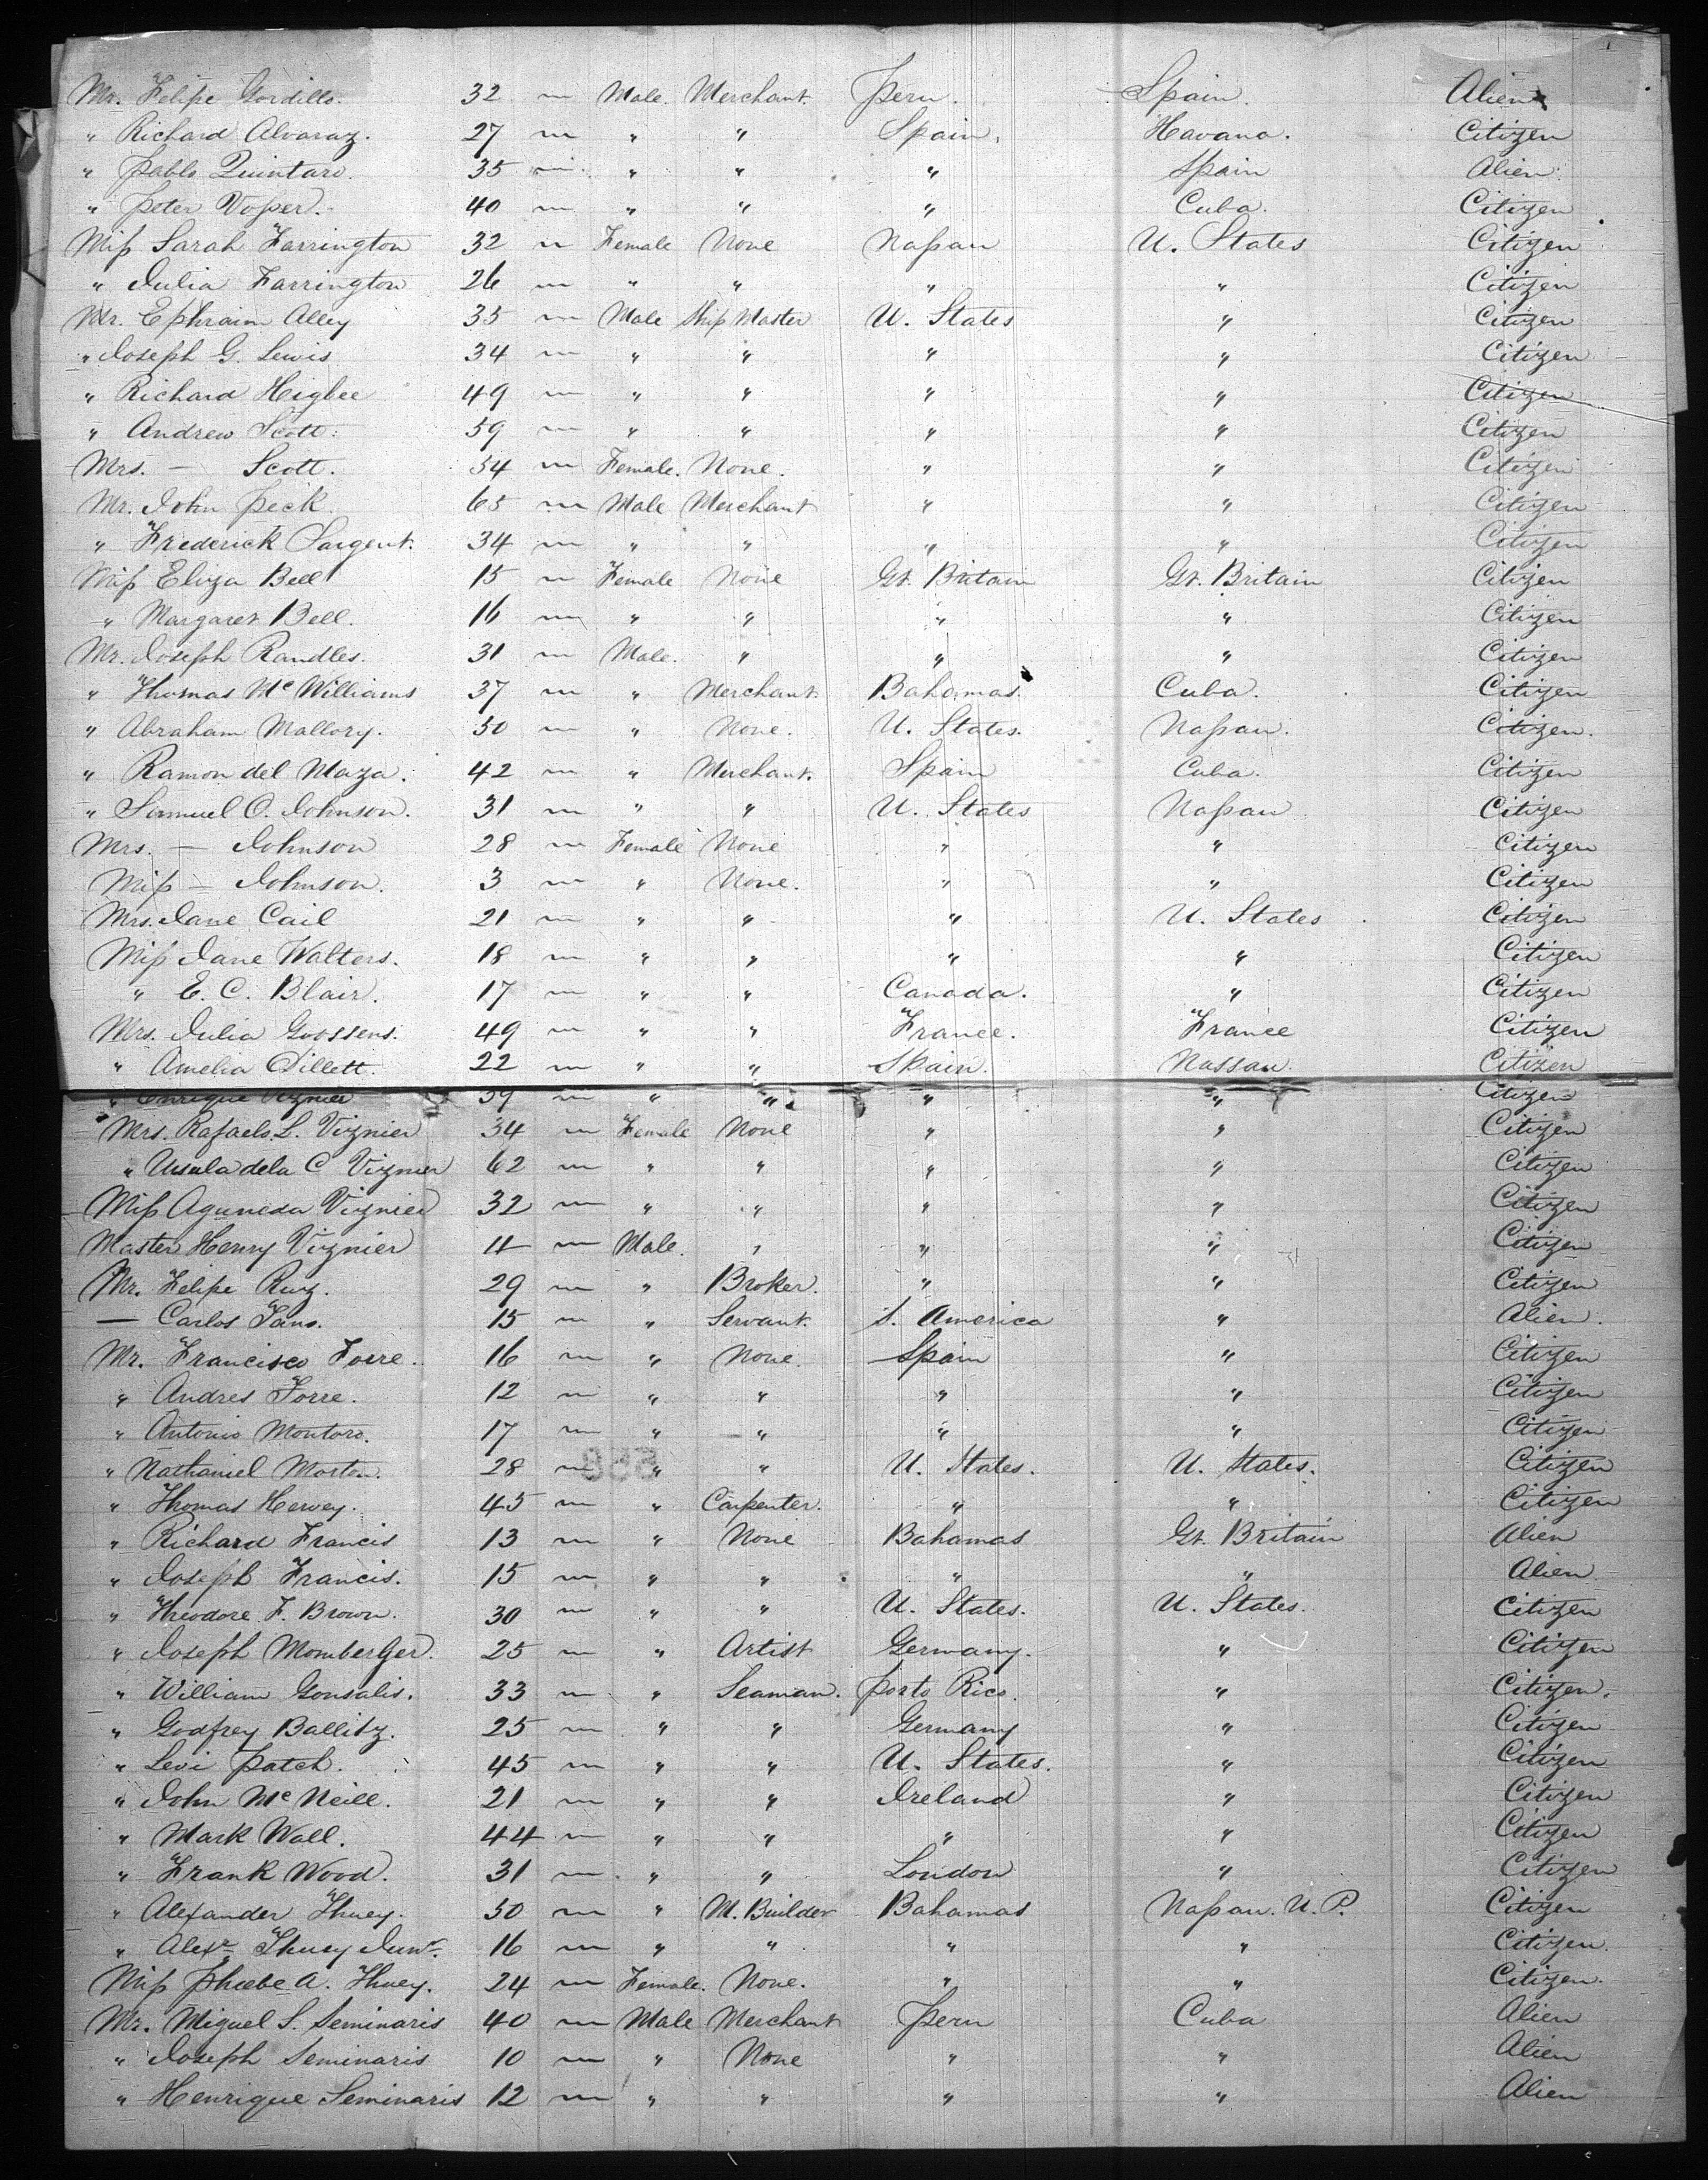 Mr. Felipe Gordillo. 32 " Male. Merchant. Peru. Spain. Alien
" Richard Alvaraz. 27 " " " Spain. Havana. Citizen
" Pablo Quintaro. 35 " " " " Spain Alien.
" Peter Voßer. 40 " " " " Cuba. Citizen
Miß Sarah Farrington 32 " Female None Naßau U. States Citizen
" Julia Farrington 26 " " " " " Citizen
Mr. Ephraim Alley 35 " Male Ship Master U. States " Citizen
" Joseph G. Lewis 34 " " " " " Citizen
" Richard Higbee 49 " " " " " Citizen
" Andrew Scott. 59 " " " " " Citizen
Mrs. — Scott. 34 " Female. None. " " Citizen
Mr. John Peck. 65 " Male Merchant " " Citizen
" Frederick Sargent. 34 " " " " " Citizen
Miß Eliza Bell 15 " Female None Gt. Britain Gt. Britain Citizen
" Margaret Bell. 16 " " " " " Citizen
Mr. Joseph Randles. 31 " Male. " " " Citizen
" Thomas Mc Williams 37 " " Merchant Bahamas. Cuba. Citizen
" Abraham Mallory. 50 " " None. U. States. Naßau. Citizen.
" Ramon del Maza. 42 " " Merchant. Spain Cuba. Citizen
" Samuel O. Johnson. 31 " " " U. States Naßau Citizen
Mrs. — Johnson 28 " Female None " " Citizen
Miß — Johnson. 3 " " None. " " Citizen
Mrs. Jane Cail 21 " " " " U. States Citizen
Miß Jane Walters. 18 " " " " " Citizen
" E. C. Blair. 17 " " " Canada. " Citizen
Mrs. Julia Goossens. 49 " " " France. France Citizen
" Amelia Dillett. 22 " " " Spain. Nassau. Citizen
" Enrique Viznier 39 " " " " " Citizen
Mrs. Rafaela L. Viznier 34 " Female None " " Citizen
" Usula dela C Viznier 62 " " " " " Citizen
Miß Aguneda Viznier 32 " " " " " Citizen
Master Henry Viznier 4 " Male. " " " Citizen
Mr. Felipe Ruiz. 29 " " Broker. " " Citizen
— Carlos Sans. 15 " " Servant. S. America " Alien.
Mr. Francisco Torre. 16 " " None. Spain " Citizen
" Andres Torre. 12 " " " " " Citizen
" Antonio Montoro. 17 " " " " " Citizen
" Nathaniel Morton. 28 " " " U. States. U. States. Citizen
" Thomas Hervey. 45 " " Carpenter. " " Citizen
" Richard Francis 13 " " None Bahamas Gt. Britain Alien
" Joseph Francis. 15 " " " " " Alien
" Theodore F. Brown. 30 " " " U. States. U. States. Citizen
" Joseph Momberger. 25 " " Artist Germany. " Citizen
" William Gonsalis. 33 " " Seaman. Porto Rico. " Citizen.
" Godfrey Ballitz. 25 " " " Germany " Citizen
" Levi Patch. 45 " " " U. States. " Citizen
" John Mc Neill. 21 " " " Ireland " Citizen
" Mark Wall. 44 " " " " " Citizen
" Frank Wood. 31 " " " London " Citizen
" Alexander Thuey. 50 " " M. Builder Bahamas Naßau. N. P. Citizen
" Alexr Thuey Junr. 16 " " " " " Citizen.
Miß Phœbe A. Thuey. 24 " Female. None. " " Citizen.
Mr. Miguel S. Seminaris 40 " Male Merchant Peru Cuba Alien
" Joseph Seminaris 10 " " None " " Alien
" Henrique Seminaris 12 " " " " " Alien